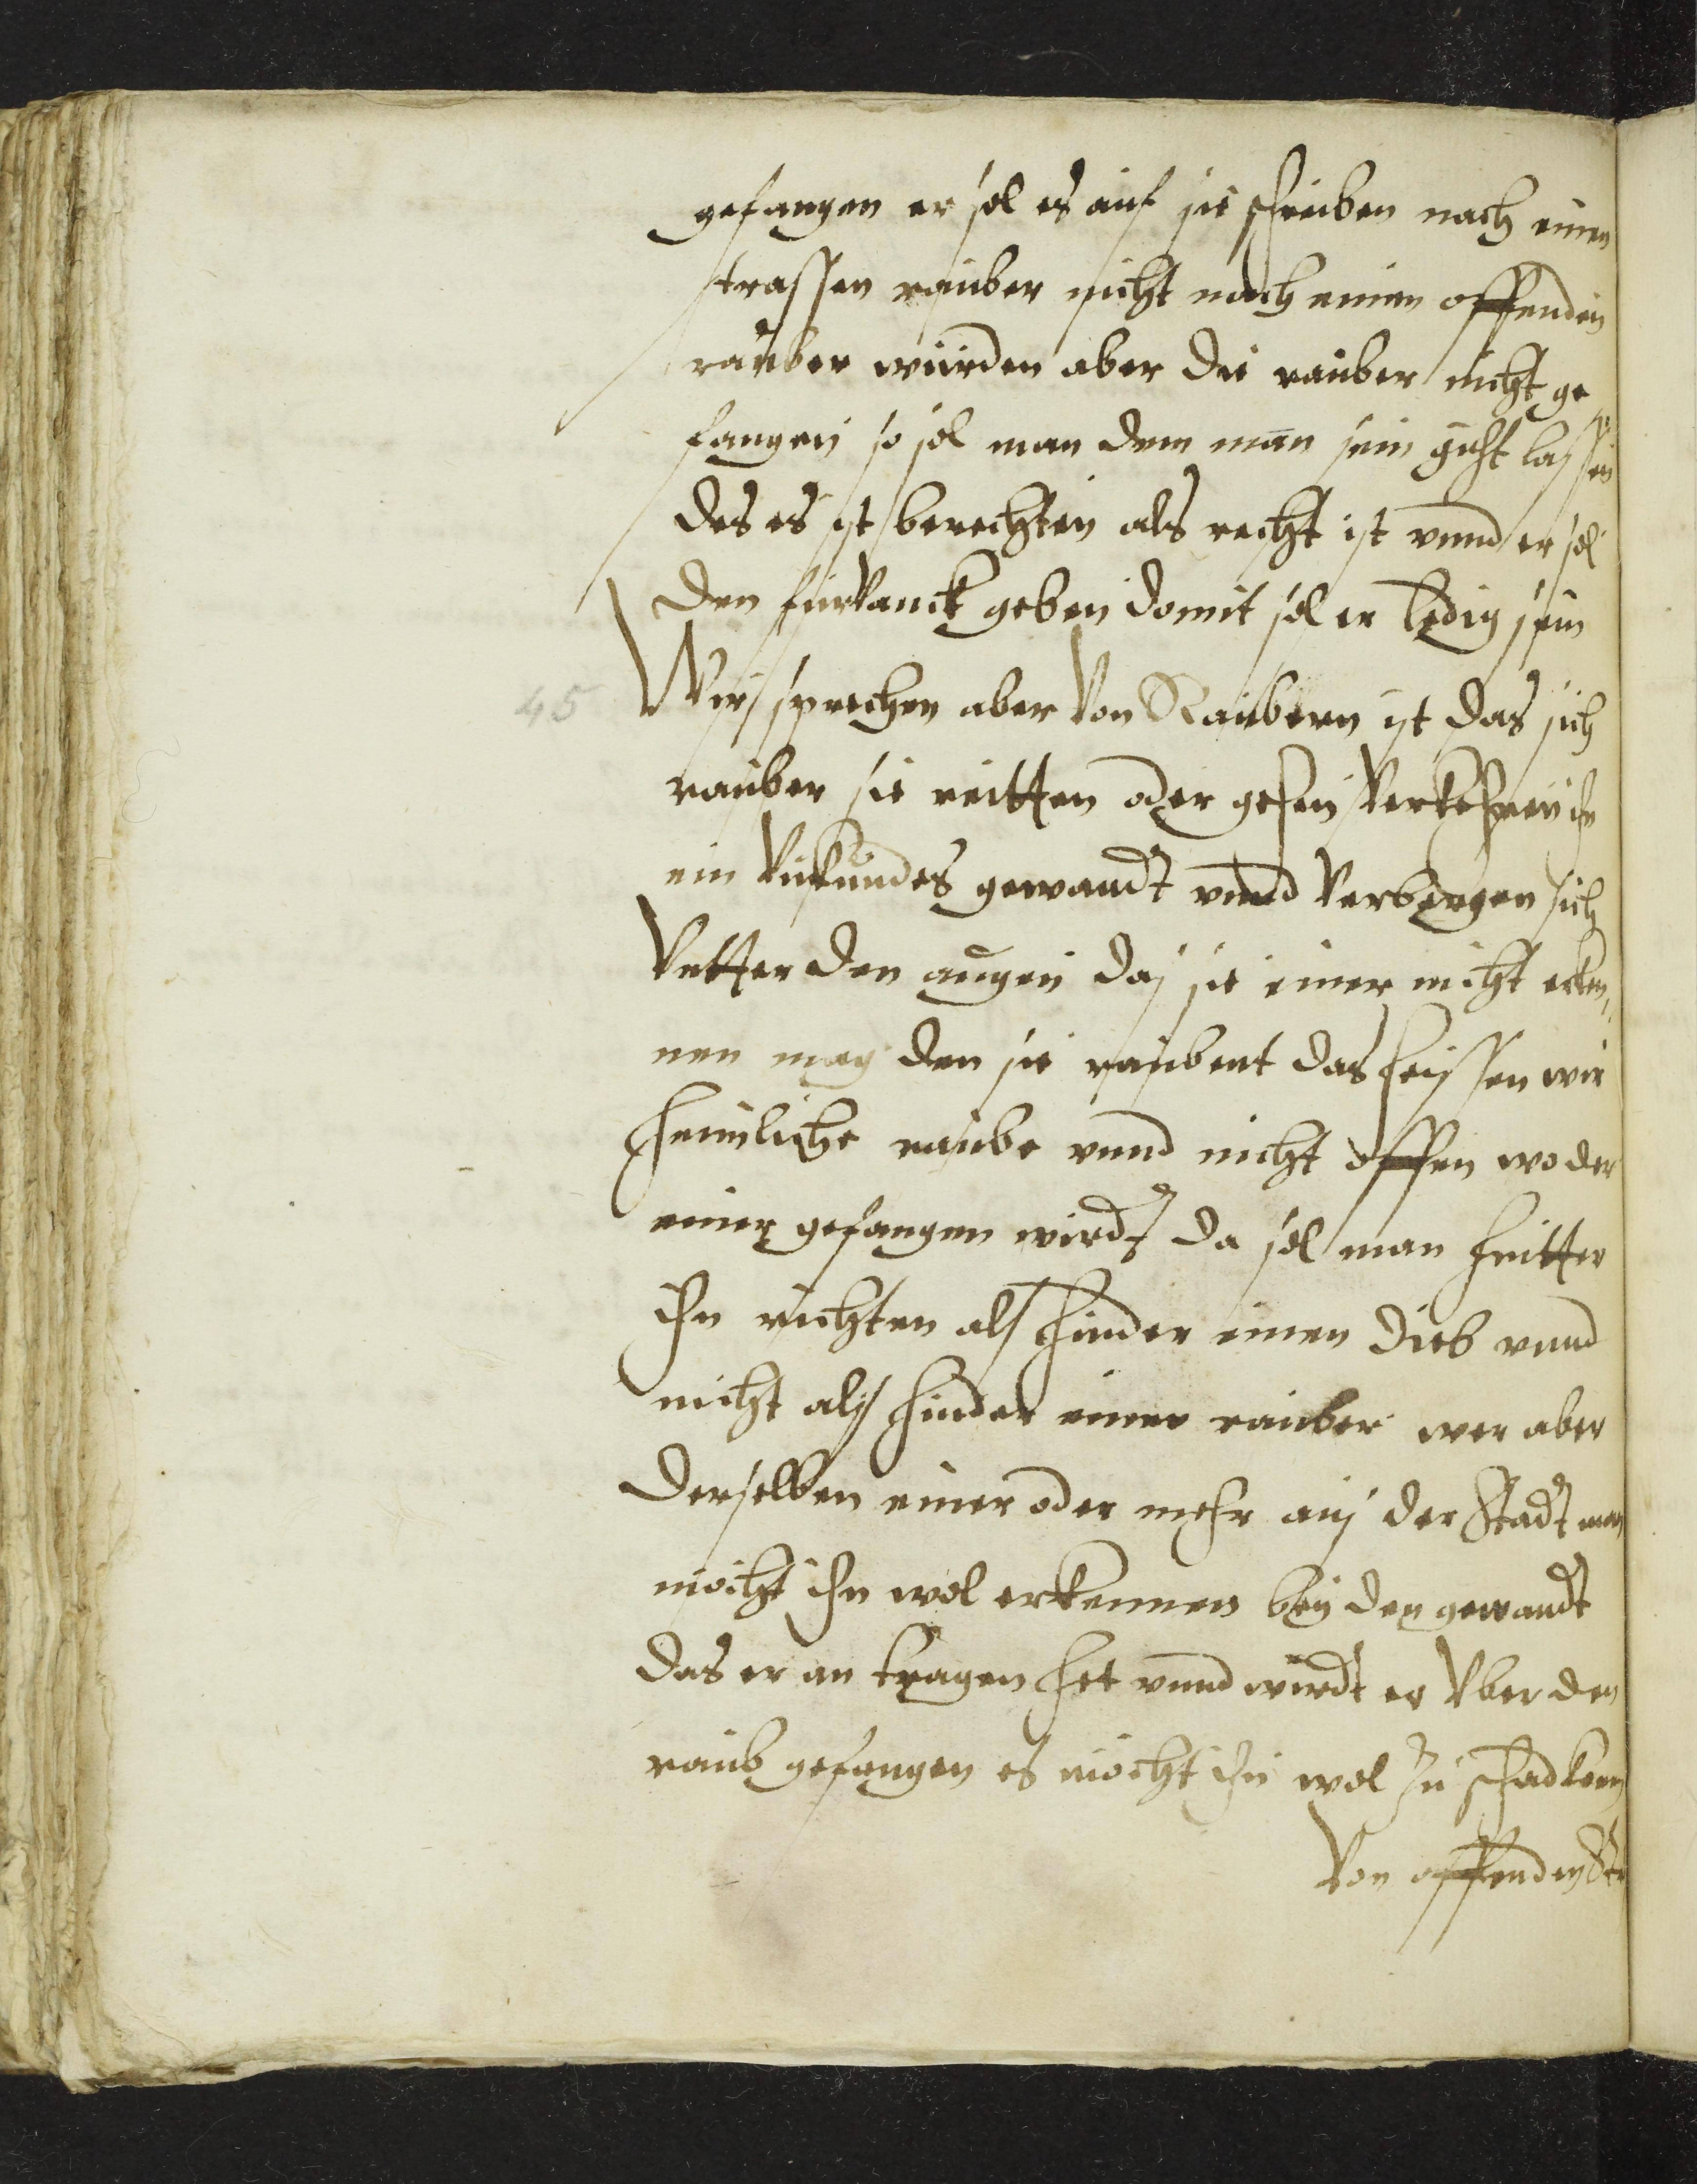 gefangen er sol es auf sie schreiben nach einen
strassen rauber nicht nach einen offenden
räuber würden aber die rauber nicht ge
fangen so sol man dem man sein guht lassen
des es ist berechten als recht ist vnnd er sol
den fürkanck geben domit sol er ledig sein
45 Wir sprechen aber von Raubern ist das sich
rauber sie reitten oder gehen verkehren in
ein vnkundes gewandt vnnd verbergen sich
vntter den augen das sie einer nicht erken,
nen mag den sie raubent das heissen wir
heimliche raube vnnd nicht offen wo der
einer gefangen wirdt da sol man hintter
ihn richten als hinder einen dieb vnnd
nicht als hinder einen rauber wer aber
derselben einer oder mehr aus der Stadt man
möcht ihn wol erkennen bey den gewandt
das er an tragen het vnnd wirdt er vber den
raub gefangen es möcht ihn wol zu schad kom
Von offenden Str